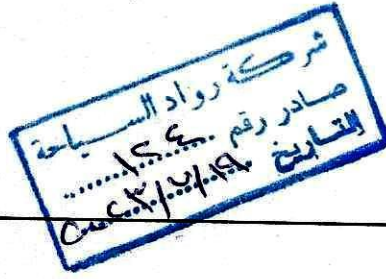 شركة رواد السياحة
صادر رقم ١٢٤
التاريخ ١٩/٧/٢٠٢٣